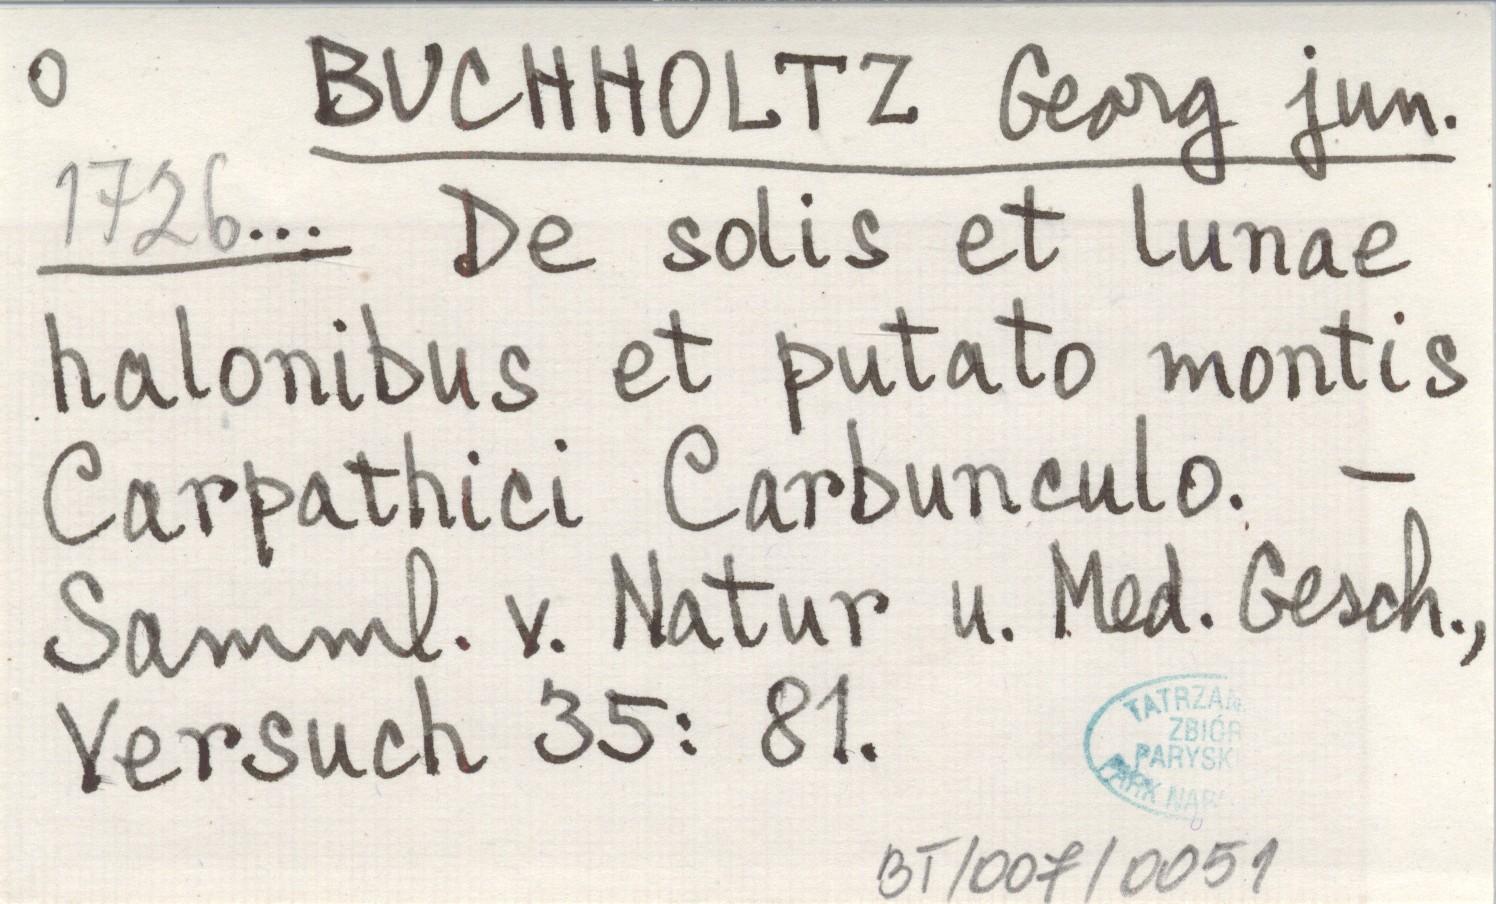 o BUCHHOLTZ Georg jun.
1726... De solis et lunae
halonibus et putato montis
Carpathici Carbunculo. –
Samml. v. Natur u. Med. Gesch.,
Versuch 35: 81.
TATRZAŃ
ZBIÓR
PARYSK
PARK NAR
BT/007/0051